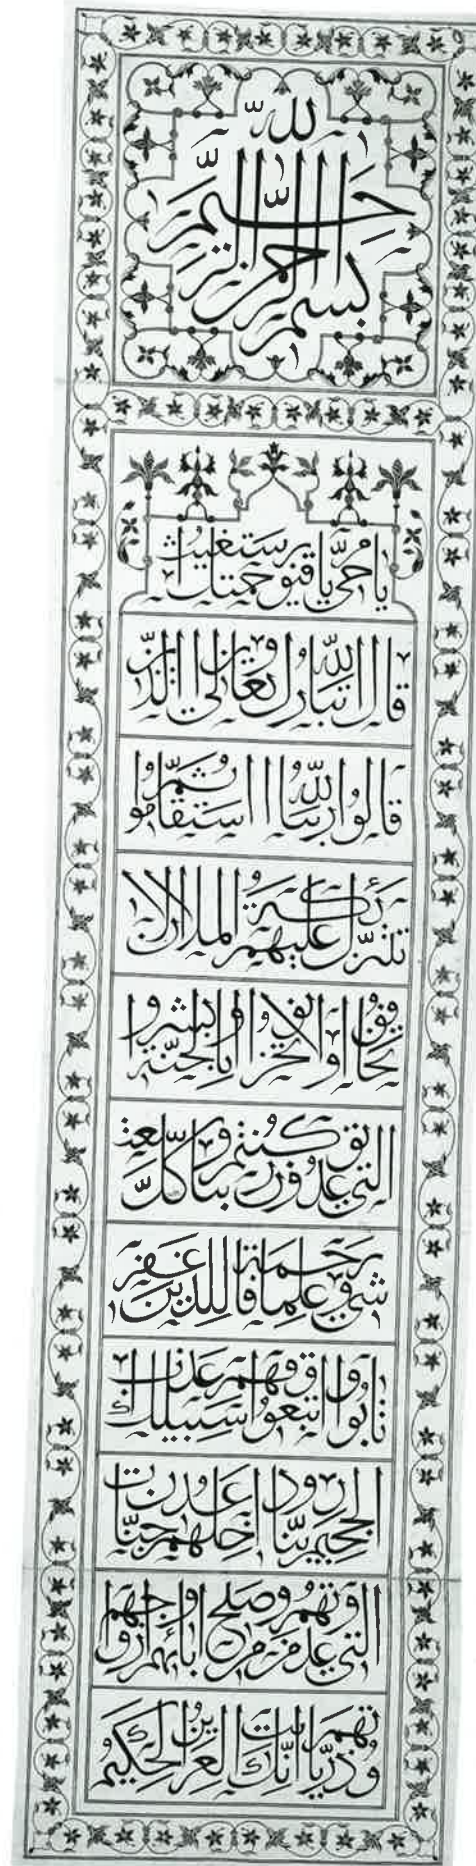 بسم الله الرحمن الرحيم
يا حي يا قيوم برحمتك استغيث
قال الله تبارك وتعالى ان الذين
قالوا ربنا الله ثم استقاموا
تتنزل عليهم الملائكة الا
تخافوا ولا تحزنوا وابشروا بالجنة
التي كنتم توعدون ربنا وسعت كل
شيء رحمة وعلما فاغفر للذين
تابوا واتبعوا سبيلك وقهم عذاب
الجحيم ربنا وادخلهم جنات عدن
التي وعدتهم ومن صلح من ابائهم وازواجهم
وذرياتهم انك انت العزيز الحكيم